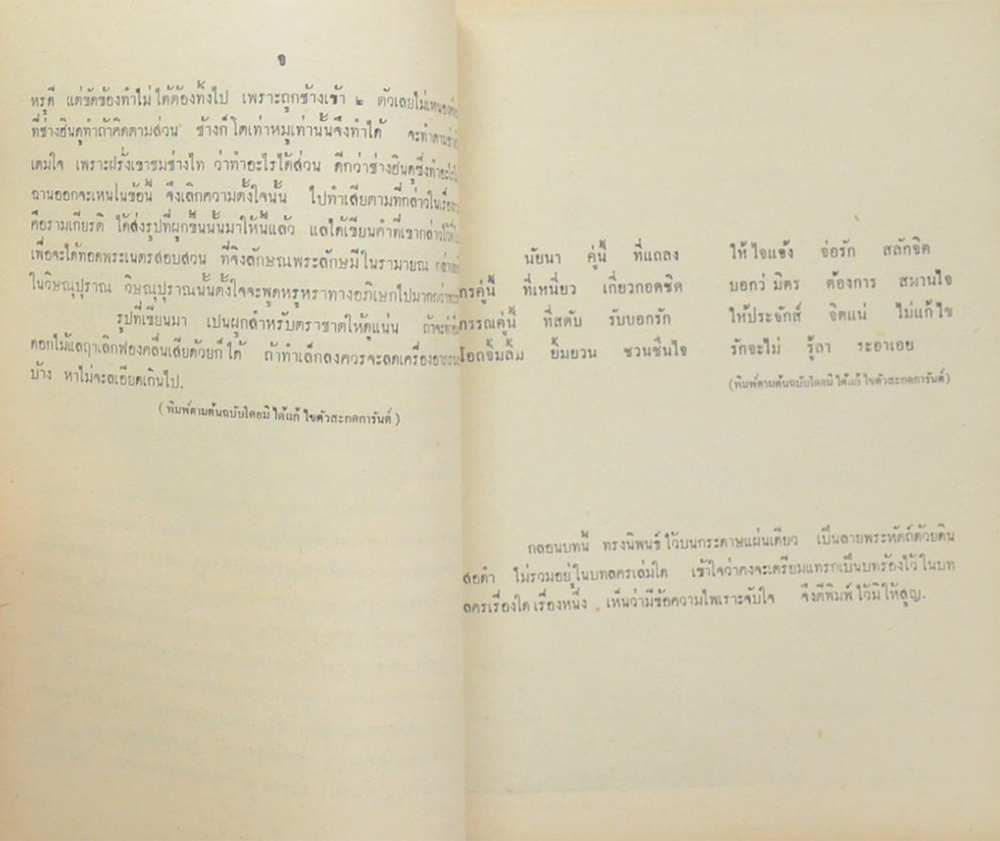 ๑
หรูดี แต่ขัดข้องทำไม่ได้ต้องทิ้งไป เพราะถูกช้างเข้า ๒ ตัวเลยไม่เหน
ที่ช่างฮินดูทำถ้าคิดตามส่วน ช้างก็โตเท่าหมูเท่านั้นจึงทำได้ จะทำตาม
เตมใจ เพราะฝรั่งเขาชมช่างไท ว่าทำอะไรได้ส่วน ดีกว่าช่างฮินดูซึ่งทำ
ถานออกจะเหนในข้อนี้ จึงเลิกความตั้งใจนั้น ไปทำเสียตามที่กล่าวในเรื่อง
คือรามเกียรติ ได้ส่งรูปที่ผูกขึ้นนั้นมาให้นี้แล้ว แลได้เขียนคำที่เขากล่าวไว้
เพื่อจะได้ทอดพระเนตรสอบสวน ที่จิงลักษณพระลักษมีในรามายณ
ในวิษณุปุราณ วิษณุปุราณนั้นตั้งใจจะพูดหรูหราทางอภิเษกไปมากกว่า
รูปที่เขียนมา เปนผูกสำหรับตราชาดให้ดูแน่น ถ้าจะ
ดอกไม้แลฤาเลิกฟองคลื่นเสียด้วยก็ได้ ถ้าทำเล็กลงควรจะลดเครื่อง
บ้าง หาไม่จะลเอียดเกินไป.
(พิมพ์ตามต้นฉบับโดยมิได้แก้ไขตัวสะกดการันต์)
นัยนา คู่นี้ ที่แถลง ให้ใจแจ้ง จ่อรัก สลักจิต
กรคู่นี้ ที่เหนี่ยว เกี่ยวกอดชิด บอกว่มิตร ต้องการ สมานใจ
กรรณคู่นี้ ที่สดับ รับบอกรัก ให้ประจักส์ จิตแน่ ไม่แก้ไข
โอถจิ้มลิ้ม ยิ้มยวน ชวนชื่นใจ รักจะไม่ รู้ลา ระอาเอย
(พิมพ์ตามต้นฉบับโดยมิได้แก้ไขตัวสะกดการันต์)
กลอนบทนี้ ทรงนิพนธ์ไว้บนกระดาษแผ่นเดียว เป็นลายพระหัตถ์ด้วยดิน
สอดำ ไม่รวมอยู่ในบทลครเล่มใด เข้าใจว่าคงจะเตรียมแทรกเป็นบทร้องไว้ในบท
ลครเรื่องใดเรื่องหนึ่ง เห็นว่ามีข้อความไพเราะจับใจ จึงตีพิมพ์ไว้มิให้สูญ.